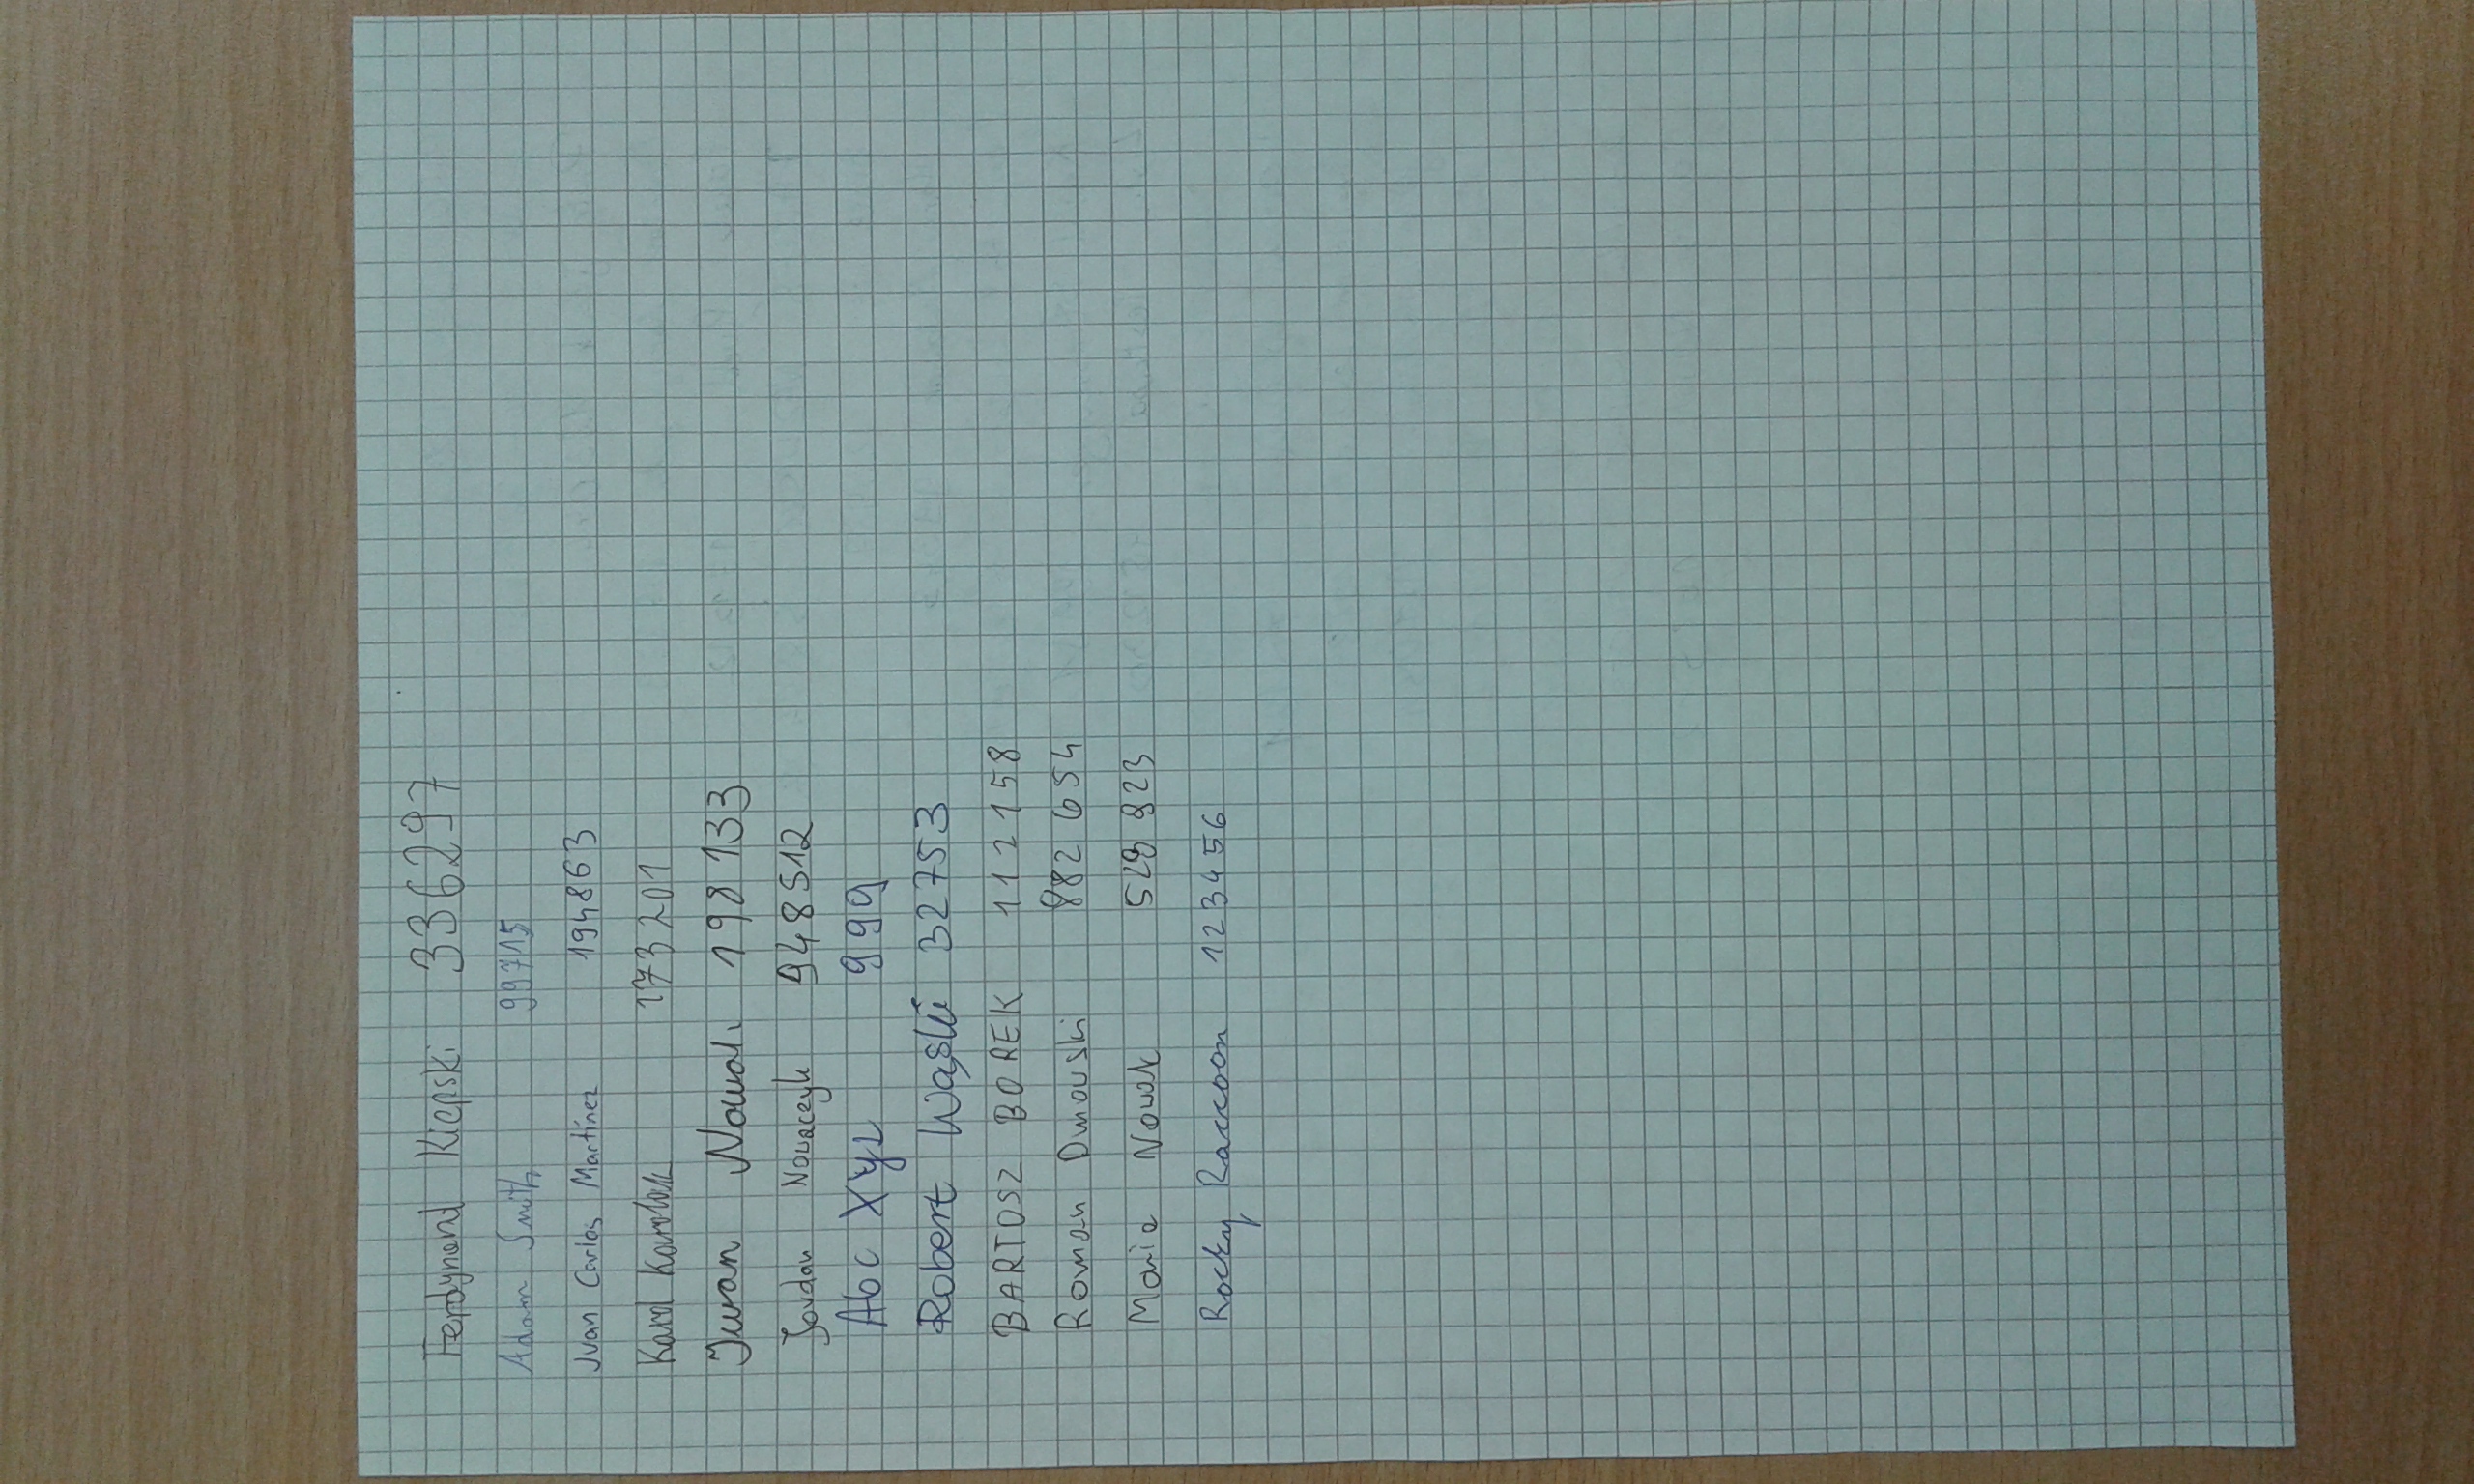 Ferdynand Kiepski 336297
Adam Smith 99715
Juan Carlos Martínez 194863
Karol Karolak 173201
Iwan Nowak 198133
Jordan Nowaczyk 948512
Abc Xyz 999
Robert Wąski 32753
BARTOSZ BOREK 112158
Roman Dmowski 882 654
Maria Nowak 528 823
Rocky Raccoon 123456